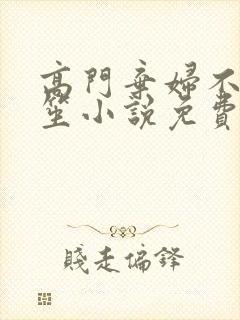 高門棄婦不
笙小說免費
賤走偏鋒